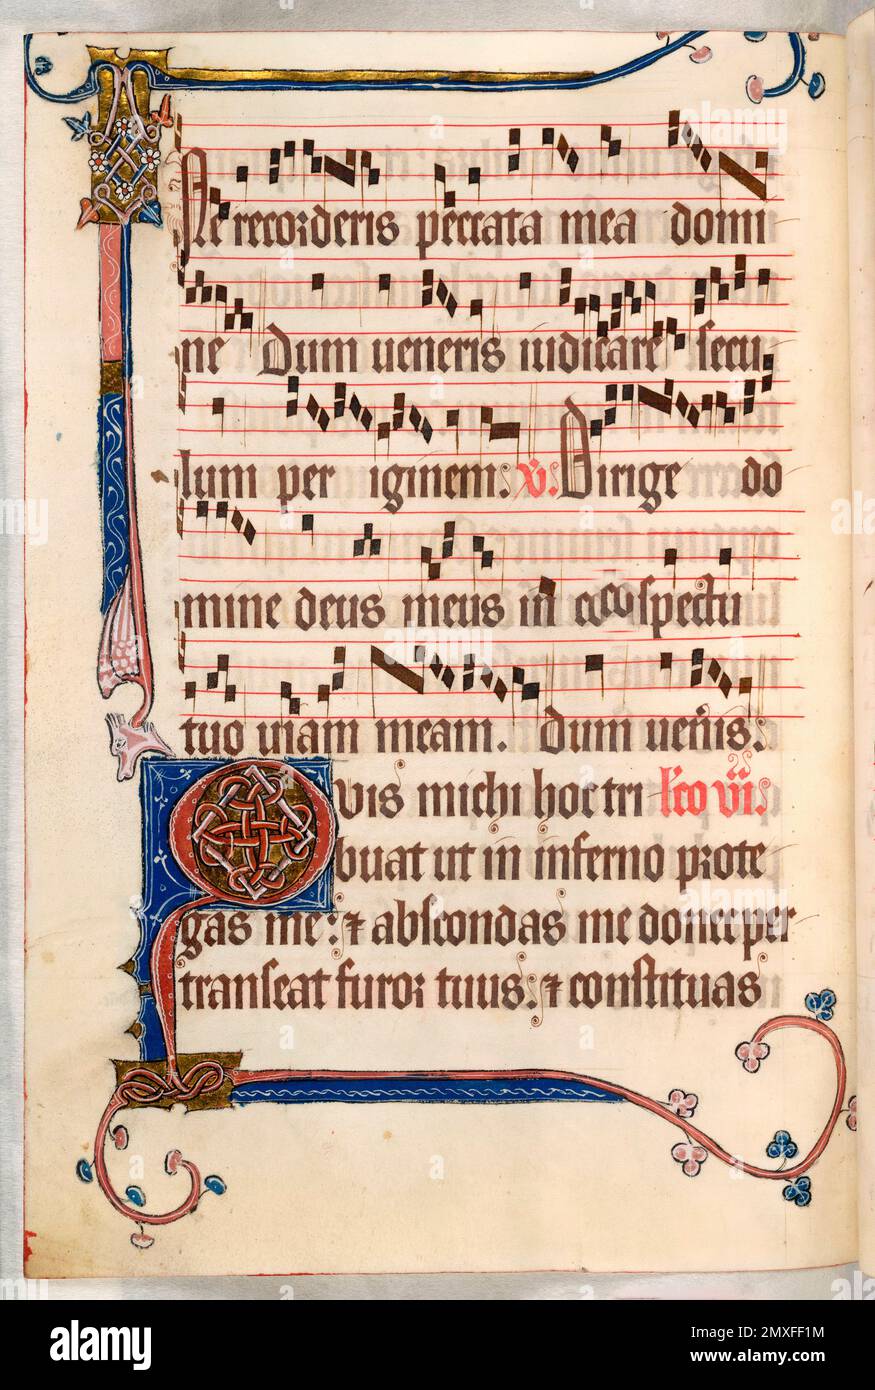 Ne recorderis peccata mea domi
ne Dum ueneris iudicare secu
lum per ignem. V. Dirige do
mine deus meus in cocospectu
tuo uiam meam. Dum uen̄is.
Quis michi hoc tri lc̄o vii.
buat ut in inferno prote
gas me: ⁊ abscondas me donec per
transeat furor tuus: ⁊ constituas
alamy
Image ID: 2MXFF1M
www.alamy.com